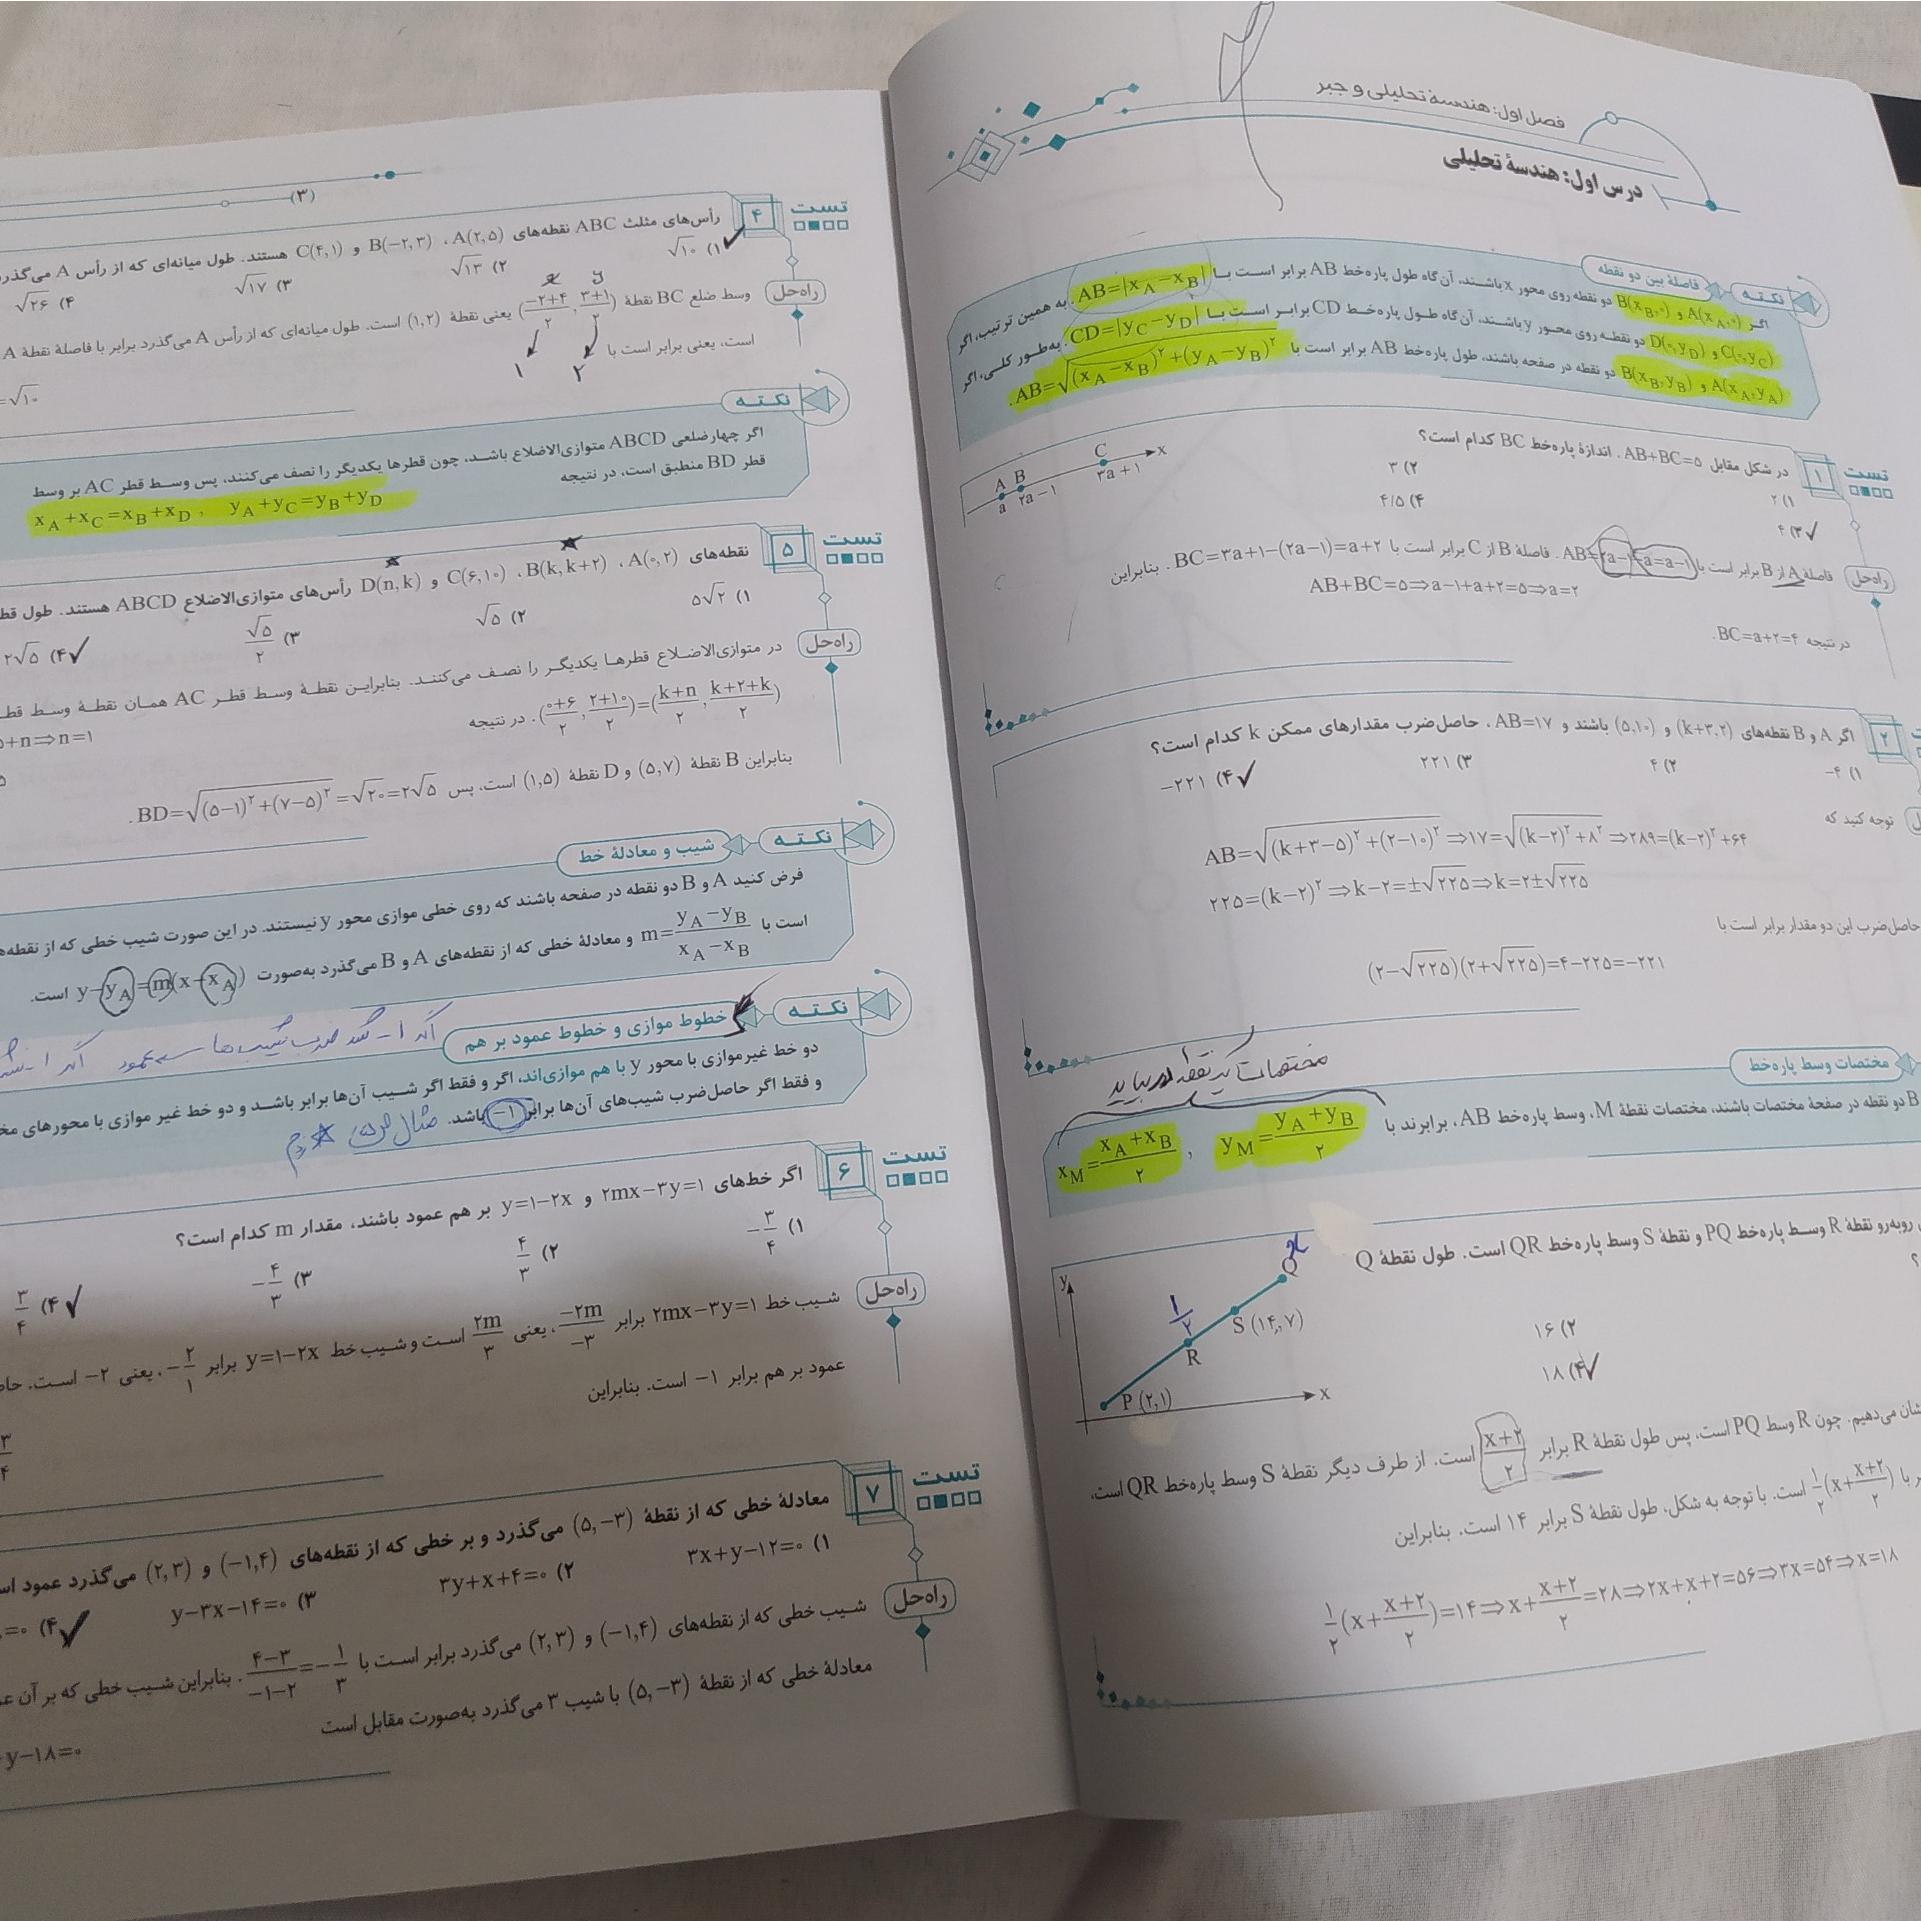 فصل اول: هندسهٔ تحلیلی و جبر
درس اول: هندسهٔ تحلیلی
نکته
فاصلهٔ بین دو نقطه
اگر A(x_A,۰) و B(x_B,۰) دو نقطه روی محور x باشند، آن‌گاه طول پاره‌خط AB برابر است با AB=|x_A−x_B|. به همین ترتیب، اگر
C(۰,y_C) و D(۰,y_D) دو نقطه روی محور y باشند، آن‌گاه طول پاره‌خط CD برابر است با CD=|y_C−y_D|. به‌طور کلی، اگر
A(x_A,y_A) و B(x_B,y_B) دو نقطه در صفحه باشند، طول پاره‌خط AB برابر است با AB=√((x_A−x_B)²+(y_A−y_B)²).
تست ۱
در شکل مقابل AB+BC=۵. اندازهٔ پاره‌خط BC کدام است؟
۱) ۲
۲) ۳
۳) ۴
۴) ۴/۵
A B C x
a ۲a−۱ ۳a+۱
راه‌حل
فاصلهٔ A از B برابر است با AB=۲a−۱−a=a−۱. فاصلهٔ B از C برابر است با BC=۳a+۱−(۲a−۱)=a+۲. بنابراین
AB+BC=۵⇒a−۱+a+۲=۵⇒a=۲
در نتیجه BC=a+۲=۴.
۲
اگر A و B نقطه‌های (k+۳,۲) و (۵,۱۰) باشند و AB=۱۷، حاصل‌ضرب مقدارهای ممکن k کدام است؟
۱) −۴
۲) ۴
۳) ۲۲۱
۴) −۲۲۱
توجه کنید که
AB=√((k+۳−۵)²+(۲−۱۰)²)⇒۱۷=√((k−۲)²+۸²)⇒۲۸۹=(k−۲)²+۶۴
۲۲۵=(k−۲)²⇒k−۲=±√۲۲۵⇒k=۲±√۲۲۵
حاصل‌ضرب این دو مقدار برابر است با
(۲−√۲۲۵)(۲+√۲۲۵)=۴−۲۲۵=−۲۲۱
مختصات وسط پاره‌خط
مختصات
B دو نقطه در صفحهٔ مختصات باشند، مختصات نقطهٔ M، وسط پاره‌خط AB، برابرند با
x_M=(x_A+x_B)/۲ , y_M=(y_A+y_B)/۲
روبه‌رو نقطهٔ R وسط پاره‌خط PQ و نقطهٔ S وسط پاره‌خط QR است. طول نقطهٔ Q
؟
۲) ۱۶
۴) ۱۸
y
x
Q
S (۱۴,۷)
۱/۲
R
P (۲,۱)
x
شان می‌دهیم. چون R وسط PQ است، پس طول نقطهٔ R برابر (x+۲)/۲ است. از طرف دیگر نقطهٔ S وسط پاره‌خط QR است،
ر با ۱/۲(x+(x+۲)/۲) است. با توجه به شکل، طول نقطهٔ S برابر ۱۴ است. بنابراین
۱/۲(x+(x+۲)/۲)=۱۴⇒x+(x+۲)/۲=۲۸⇒۲x+x+۲=۵۶⇒۳x=۵۴⇒x=۱۸
(۳)
تست ۴
رأس‌های مثلث ABC نقطه‌های A(۲,۵)، B(−۲,۳) و C(۴,۱) هستند. طول میانه‌ای که از رأس A می‌گذرد
۱) √۱۰
۲) √۱۳
۳) √۱۷
۴) √۲۶
x y
راه‌حل
وسط ضلع BC نقطهٔ ((−۲+۴)/۲, (۳+۱)/۲) یعنی نقطهٔ (۱,۲) است. طول میانه‌ای که از رأس A می‌گذرد برابر با فاصلهٔ نقطهٔ A
است، یعنی برابر است با
۱ ۲
=√۱۰
نکته
اگر چهارضلعی ABCD متوازی‌الاضلاع باشد، چون قطرها یکدیگر را نصف می‌کنند، پس وسط قطر AC بر وسط
قطر BD منطبق است، در نتیجه
x_A+x_C=x_B+x_D , y_A+y_C=y_B+y_D
تست ۵
نقطه‌های A(۰,۲)، B(k,k+۲)، C(۶,۱۰) و D(n,k) رأس‌های متوازی‌الاضلاع ABCD هستند. طول قط
۱) ۵√۲
۲) √۵
۳) √۵/۲
۴) ۲√۵
راه‌حل
در متوازی‌الاضلاع قطرها یکدیگر را نصف می‌کنند. بنابراین نقطهٔ وسط قطر AC همان نقطهٔ وسط قطـ
((۰+۶)/۲, (۲+۱۰)/۲)=((k+n)/۲, (k+۲+k)/۲). در نتیجه
۵+n⇒n=۱
بنابراین B نقطهٔ (۵,۷) و D نقطهٔ (۱,۵) است، پس BD=√((۵−۱)²+(۷−۵)²)=√۲۰=۲√۵.
نکته
شیب و معادلهٔ خط
فرض کنید A و B دو نقطه در صفحه باشند که روی خطی موازی محور y نیستند. در این صورت شیب خطی که از نقطه‌ه
است با m=(y_A−y_B)/(x_A−x_B) و معادلهٔ خطی که از نقطه‌های A و B می‌گذرد به‌صورت y−y_A=m(x−x_A) است.
نکته
خطوط موازی و خطوط عمود بر هم
اگر ۱− شد ضرب شیب‌ها عمود
دو خط غیرموازی با محور y با هم موازی‌اند، اگر و فقط اگر شیب آن‌ها برابر باشد و دو خط غیر موازی با محورهای مخ
و فقط اگر حاصل‌ضرب شیب‌های آن‌ها برابر −۱ باشد.
مثال
تست ۶
اگر خط‌های ۲mx−۳y=۱ و y=۱−۲x بر هم عمود باشند، مقدار m کدام است؟
۱) −۳/۴
۲) ۴/۳
۳) −۴/۳
۴) ۳/۴
راه‌حل
شیب خط ۲mx−۳y=۱ برابر −۲m/−۳، یعنی ۲m/۳ است و شیب خط y=۱−۲x برابر −۲/۱، یعنی −۲ است. حا
عمود بر هم برابر −۱ است. بنابراین
۳/۴
تست ۷
معادلهٔ خطی که از نقطهٔ (۵,−۳) می‌گذرد و بر خطی که از نقطه‌های (−۱,۴) و (۲,۳) می‌گذرد عمود اس
۱) ۳x+y−۱۲=۰
۲) ۳y+x+۴=۰
۳) y−۳x−۱۴=۰
۴) =۰
راه‌حل
شیب خطی که از نقطه‌های (−۱,۴) و (۲,۳) می‌گذرد برابر است با (۴−۳)/(−۱−۲)=−۱/۳. بنابراین شیب خطی که بر آن ع
معادلهٔ خطی که از نقطهٔ (۵,−۳) با شیب ۳ می‌گذرد به‌صورت مقابل است
y−۱۸=۰